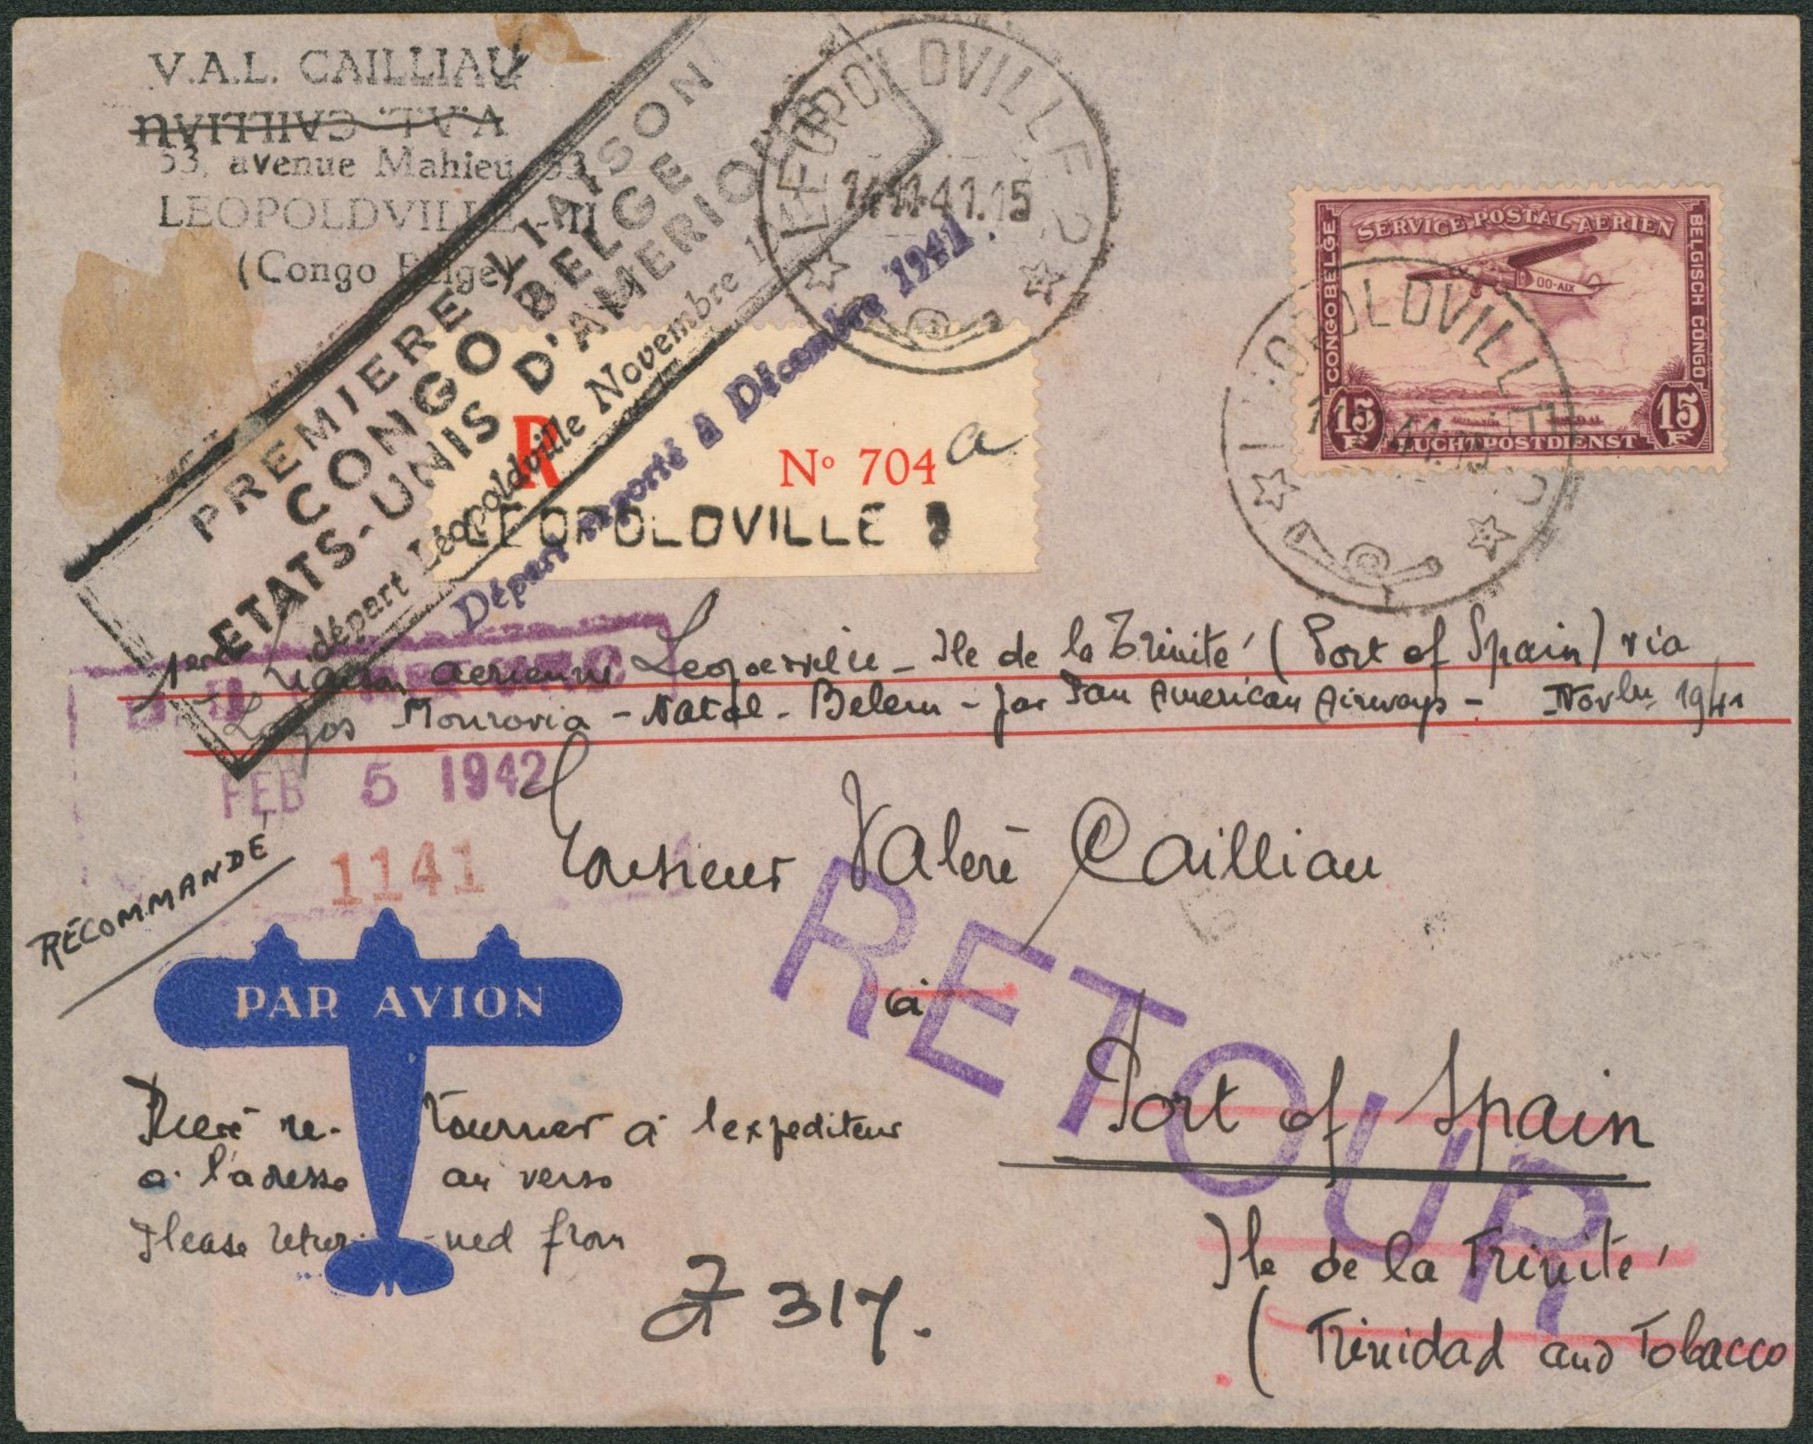 V.A.L. CAILLIAU
V.A.L. CAILLIAU
53, avenue Mahieu, 53
LEOPOLDVILLE-III
(Congo Belge)
PREMIERE LIAISON
CONGO BELGE
ETATS-UNIS D'AMERIQUE
départ Léopoldville Novembre
Départ reporté à Décembre 1941.
LEOPOLDVILLE 2
41.15
R
Nº 704 a
LEOPOLDVILLE
SERVICE POSTAL AERIEN
CONGO BELGE
BELGISCH CONGO
OO-AIX
15 F
15 F
LUCHTPOSTDIENST
LEOPOLDVILLE 2
1ere Liaison aerienne Leopoldville - Ile de la Trinité (Port of Spain) via
Lagos Monrovia - Natal - Belem - par Pan American Airways - Novbre 1941
FEB 5 1942
1141
RECOMMANDÉ
Monsieur Valère Cailliau
RETOUR
à
PAR AVION
Port of Spain
Ile de la Trinité
(Trinidad and Tobacco
Prière re- tourner à l'expediteur
à l'adresse au verso
Please retur- ned from
317.